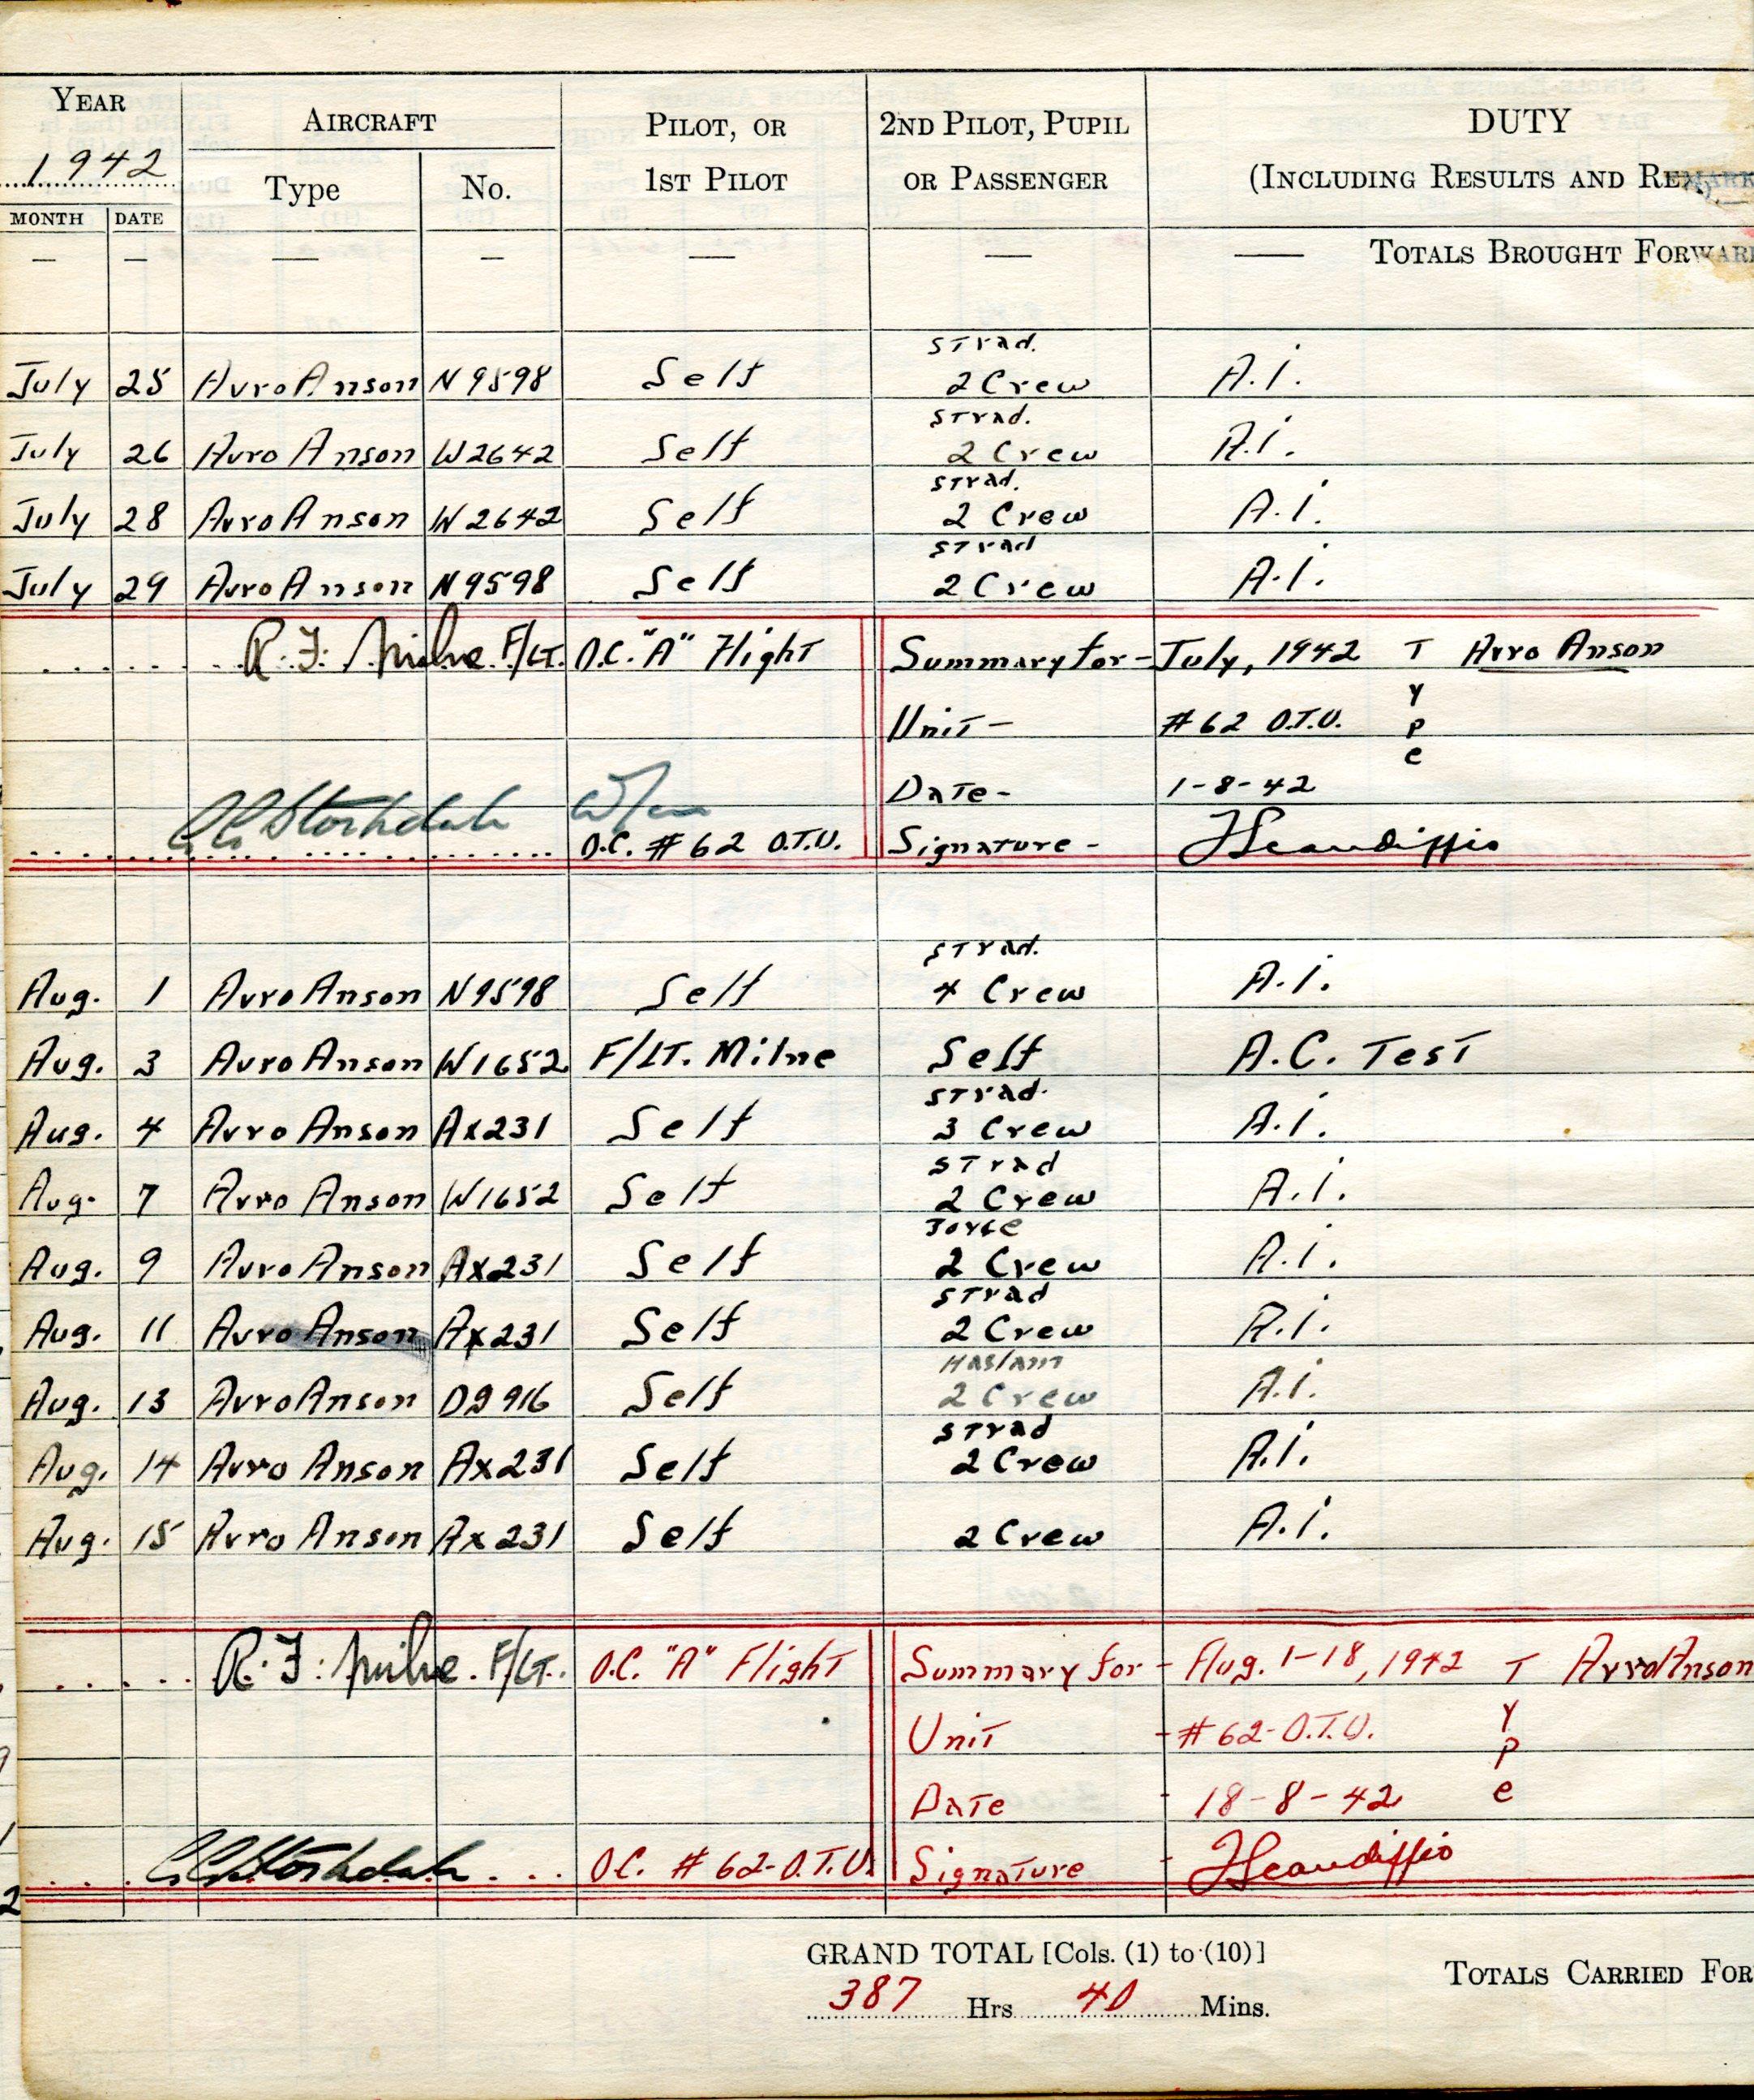 YEAR AIRCRAFT PILOT, OR 2ND PILOT, PUPIL DUTY
1942 Type No. 1ST PILOT OR PASSENGER (INCLUDING RESULTS AND REMARK
MONTH DATE
— — — — — — — TOTALS BROUGHT FORWAR
Strad.
July 25 Avro Anson N9598 Self 2 Crew A.I.
Strad.
July 26 Avro Anson W2642 Self 2 Crew A.I.
Strad.
July 28 Avro Anson W2642 Self 2 Crew A.I.
Strad
July 29 Avro Anson N9598 Self 2 Crew A.I.
R.F. Milne F/LT. O.C. "A" Flight Summary for - July, 1942 Type Avro Anson
Unit - #62 O.T.U.
Date - 1-8-42
O.C. #62 O.T.U. Signature -
Strad.
Aug. 1 Avro Anson N9598 Self 4 Crew A.I.
Aug. 3 Avro Anson W1652 F/LT. Milne Self A.C. Test
Strad.
Aug. 4 Avro Anson Ax231 Self 3 Crew A.I.
Strad
Aug. 7 Avro Anson W1652 Self 2 Crew A.I.
Aug. 9 Avro Anson Ax231 Self 2 Crew A.I.
Strad
Aug. 11 Avro Anson Ax231 Self 2 Crew A.I.
Haslam
Aug. 13 Avro Anson DG916 Self 2 Crew A.I.
Strad
Aug. 14 Avro Anson Ax231 Self 2 Crew A.I.
Aug. 15 Avro Anson Ax231 Self 2 Crew A.I.
R.F. Milne. F/LT. O.C. "A" Flight Summary for - Aug. 1-18, 1942 Type Avro Anson
Unit - #62-O.T.U.
Date - 18-8-42
O.C. #62-O.T.U. Signature -
GRAND TOTAL [Cols. (1) to (10)]
TOTALS CARRIED FOR
387 Hrs 40 Mins.